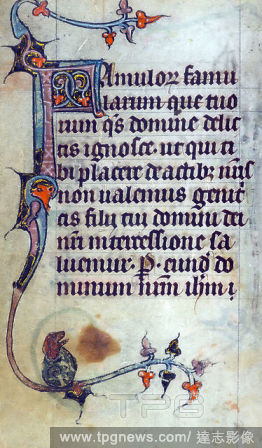 Famulor famu
larum que tuo
rum qs domine delic
tis ignosce ut qui ti
bi placere de actib; nris
non valemus genic
cis filii tui domini dei
nri intercessione sa
luemur. P. eund do
minum nrm ihm i
TPG
www.tpgnews.com/達志影像